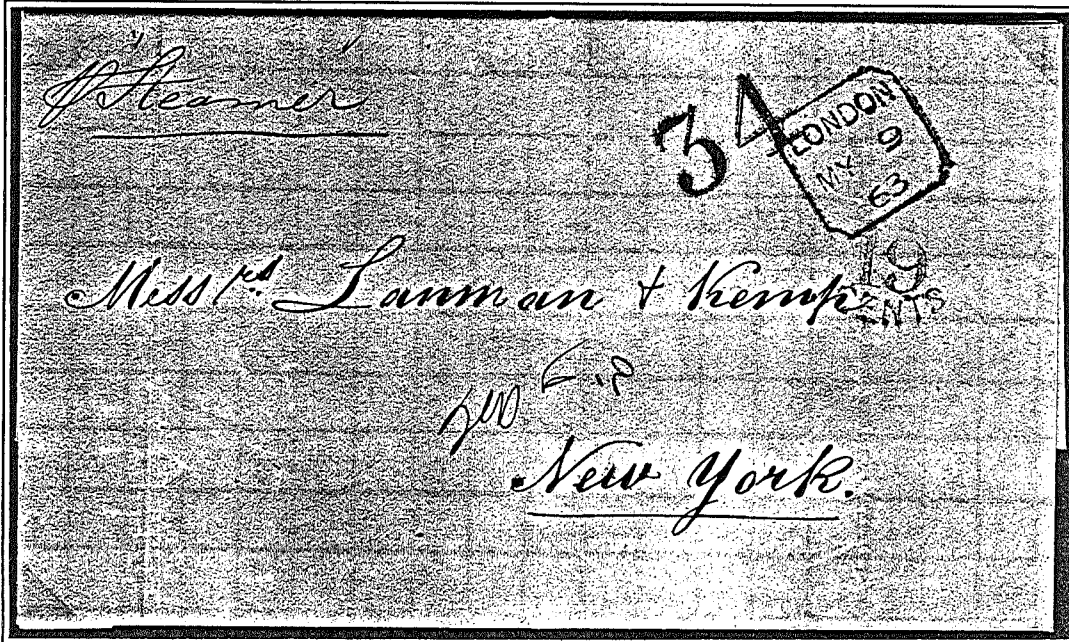 p Steamer
34
LONDON
MY 9
63
19
CENTS
Mess rs. Lanman + Kemp
New York.